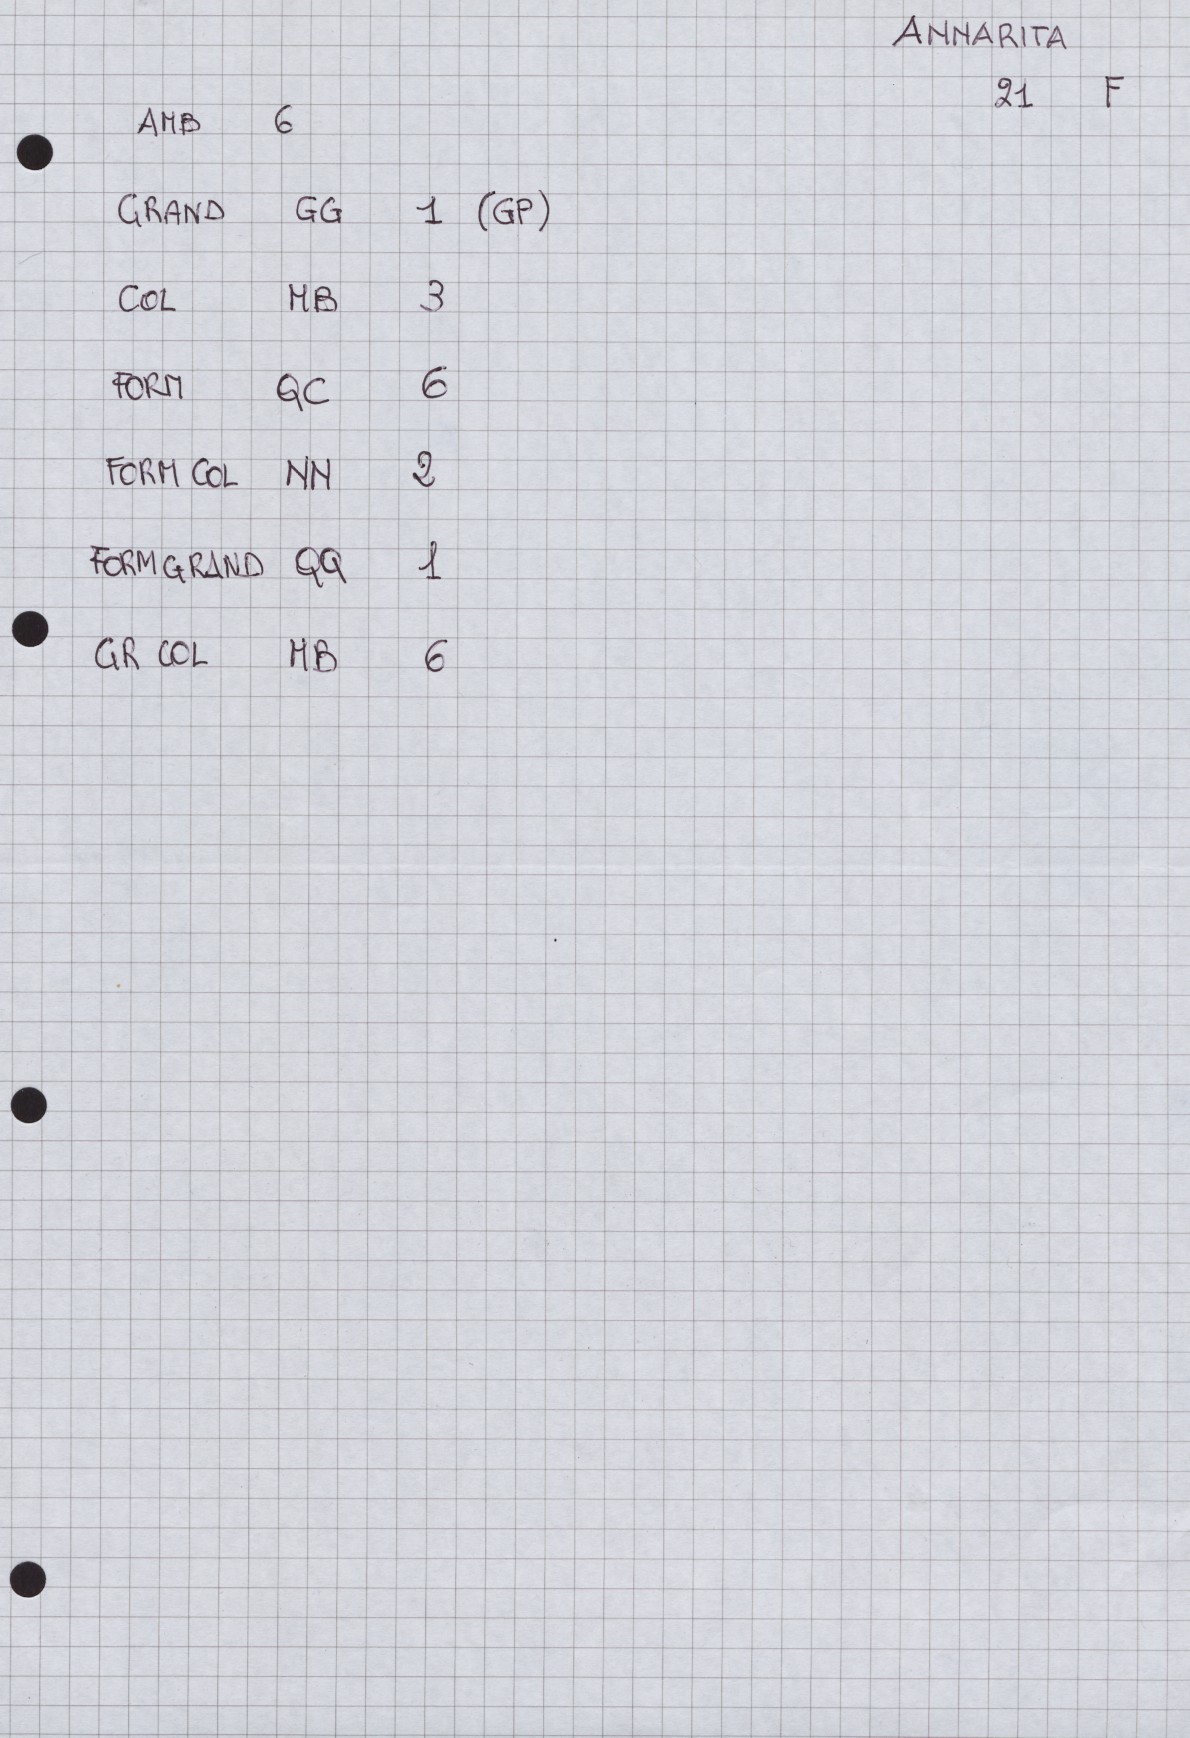 ANNARITA
21 F
AMB 6
GRAND GG 1 (GP)
COL MB 3
FORM QC 6
FORM COL NN 2
FORM GRAND QQ 1
GR COL MB 6